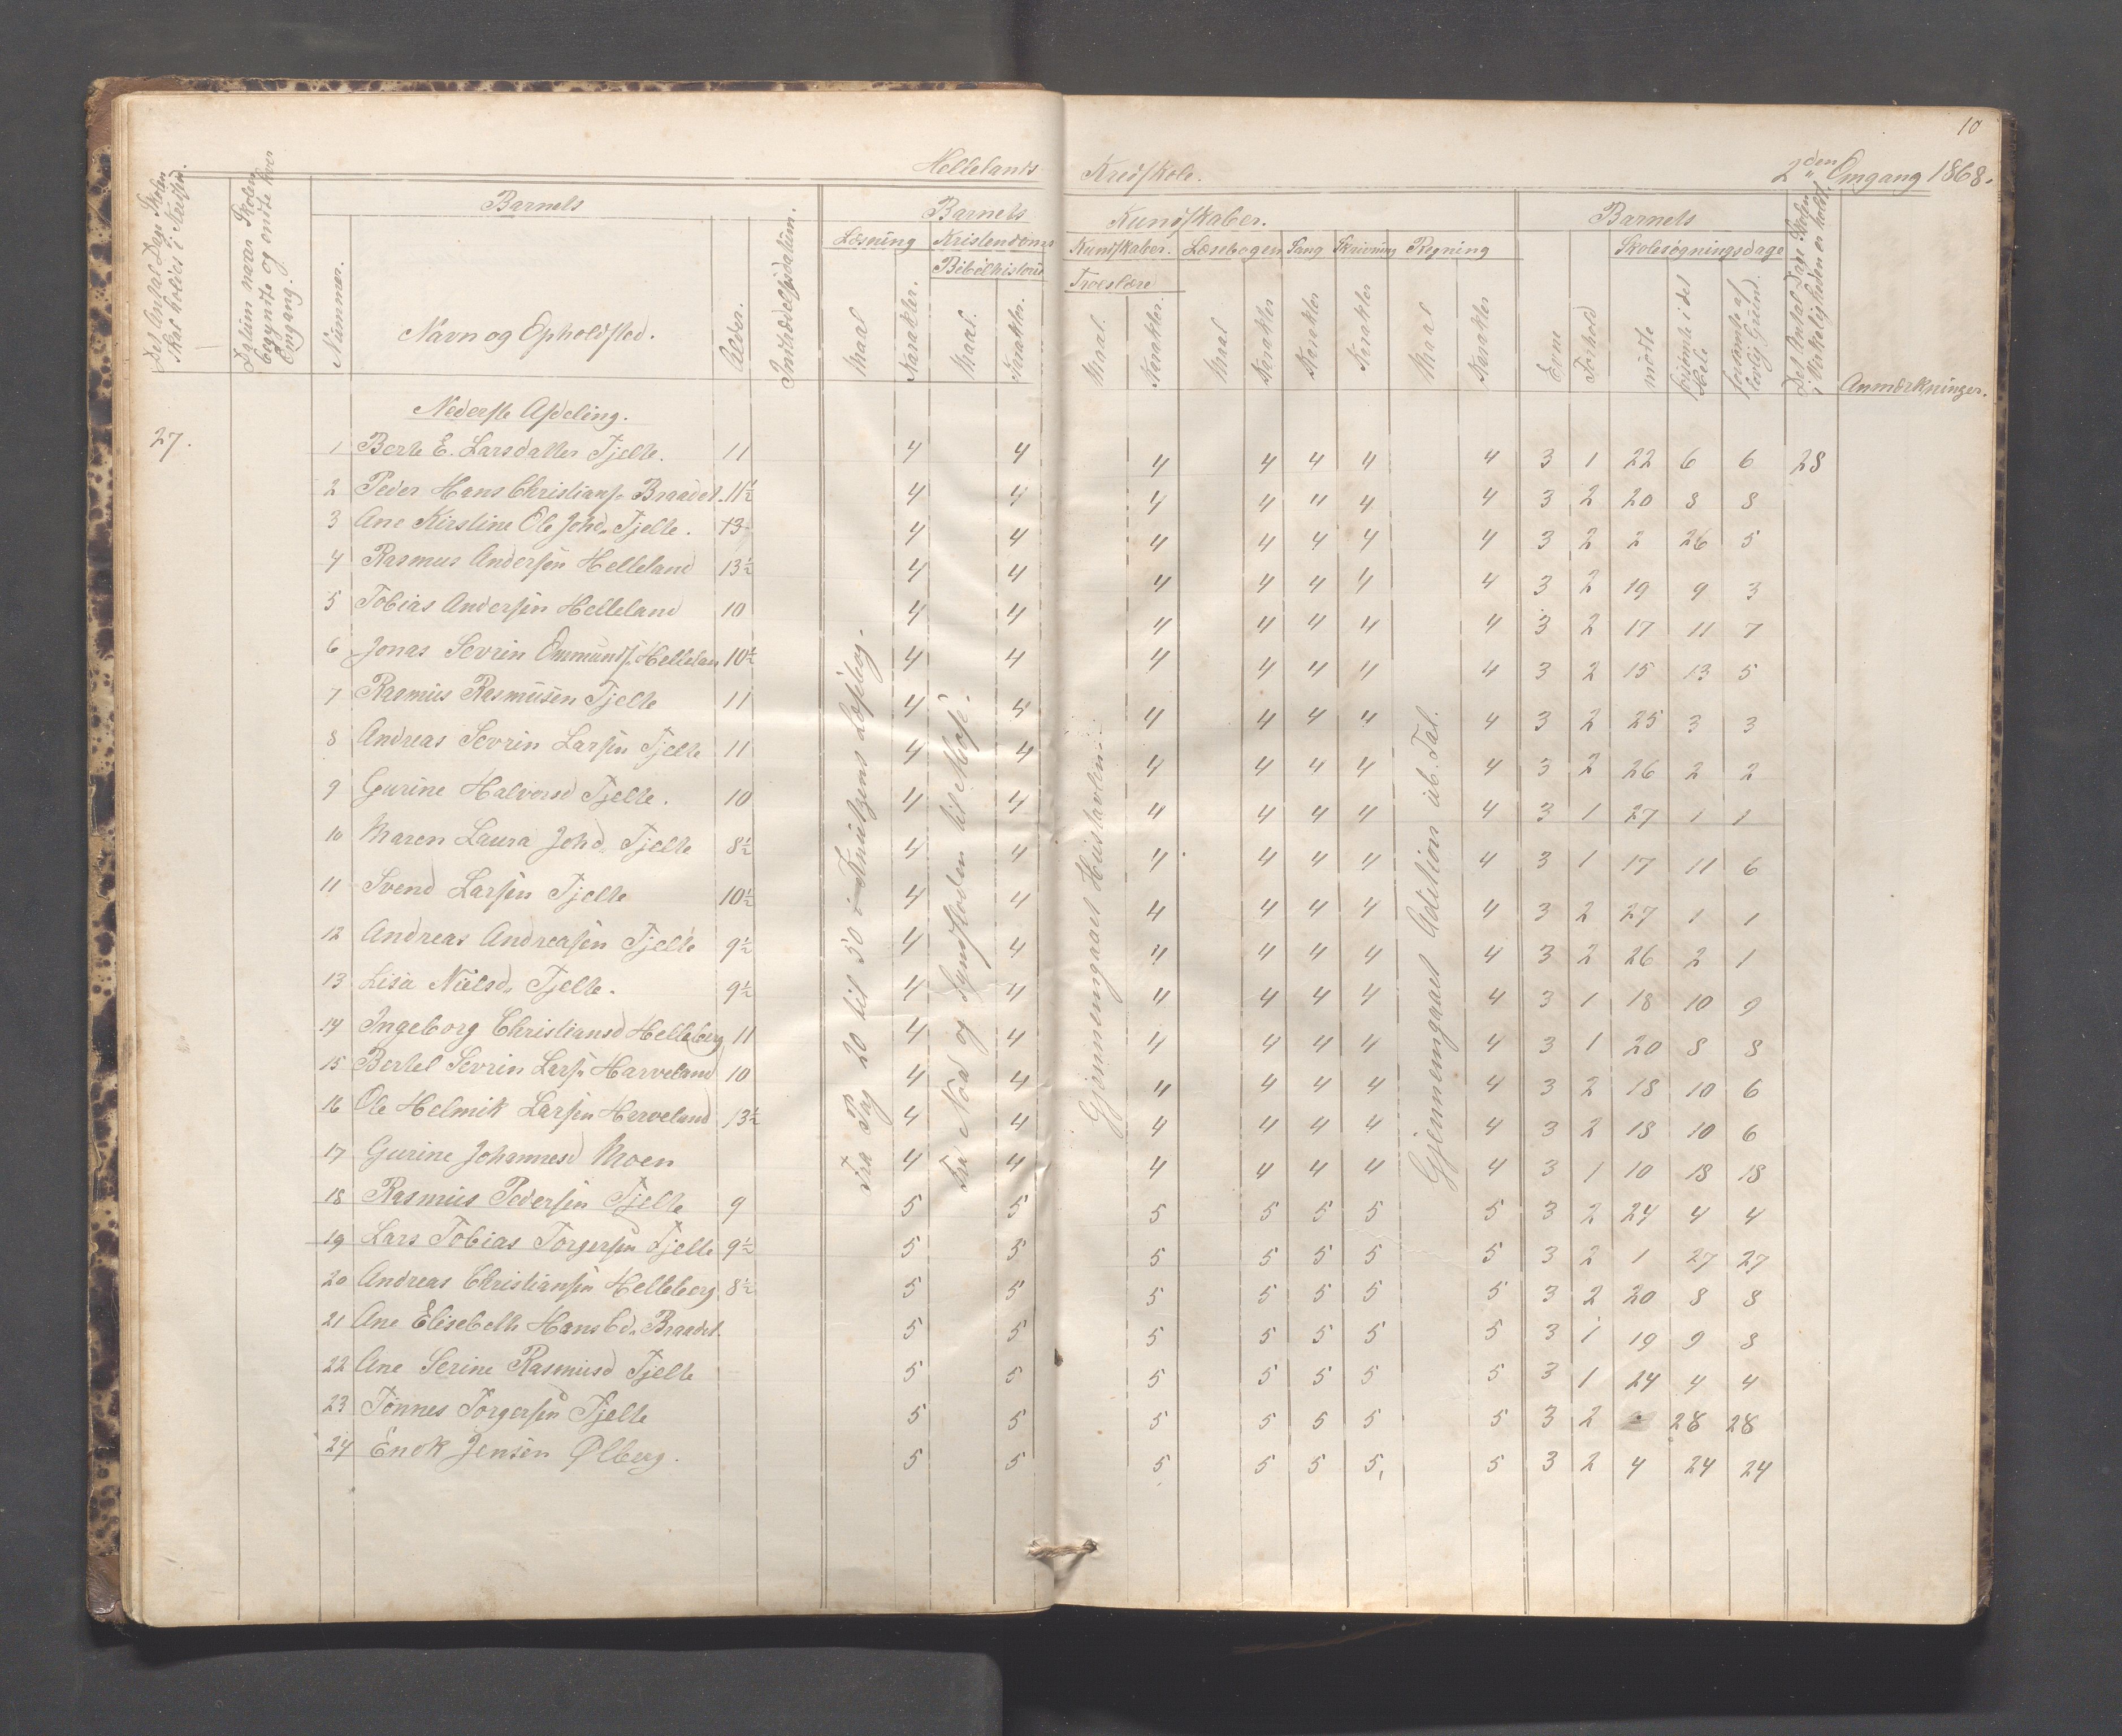 10
Hellelands Kredsskole. 2den Omgang 1868.
Det Antal Dage Skolen skal holdes i Kredsen.
Datum naar Skolen begyndte og endte hver Omgang.
Nummer.
Barnets
Navn og Opholdssted.
Alder.
Indtrædelsesdatum.
Barnets Kundskaber.
Læsning
Maal
Karakter.
Kristendoms Kundskaber.
Bibelhistorie
Maal.
Karakter.
Troeslære
Maal.
Karakter.
Læsebogen
Maal
Karakter
Sang
Karakter
Skrivning
Karakter
Regning
Maal
Karakter
Barnets
Evne
Forhold
Skolesøgningsdage
mødte
forsømte i det Hele
forsømte af lovlig Grund.
Det Antal Dage Skolen i Virkeligheden er holdt.
Anmærkninger.
Nederste Afdeling.
27.
1 Berte E. Larsdatter Tjelte. 11 4 4 4 4 4 4 4 3 1 22 6 6 28
2 Peder Hans Christians. Braadet. 11½ 4 4 4 4 4 4 4 3 2 20 8 8
3 Ane Kirstine Ole Johd. Tjelte. 13 4 4 4 4 4 4 4 3 2 2 26 5
4 Rasmus Andersen Helleland 13½ 4 4 4 4 4 4 4 3 2 19 9 3
5 Tobias Andersen Helleland 10 4 4 4 4 4 4 4 3 2 17 11 7
6 Jonas Sevrin Ommunds. Hellelan 10½ 4 4 4 4 4 4 4 3 2 15 13 5
7 Rasmus Rasmusen Tjelte 11 4 4 4 4 4 4 4 3 2 25 3 3
8 Andreas Sevrin Larsen Tjelte 11 4 4 4 4 4 4 4 3 2 26 2 2
9 Gurine Halvorsd Tjelte. 10 4 4 4 4 4 4 4 3 1 27 1 1
10 Maren Laura Johd. Tjelte 8½ 4 4 4 4 4 4 4 3 1 17 11 6
11 Svend Larsen Tjelte 10½ 4 4 4 4 4 4 4 3 2 27 1 1
12 Andreas Andreasen Tjelte 9½ 4 4 4 4 4 4 4 3 2 26 2 1
13 Lisa Nielsd. Tjelte. 9½ 4 4 4 4 4 4 4 3 1 18 10 9
14 Ingeborg Christiansd Helleberg 11 4 4 4 4 4 4 4 3 1 20 8 8
15 Bertel Sevrin Lars. Harveland 10 4 4 4 4 4 4 4 3 2 18 10 6
16 Ole Helmik Larsen Harveland 13½ 4 4 4 4 4 4 4 3 2 18 10 6
17 Gurine Johannesd Moen 4 4 4 4 4 4 4 3 1 10 18 18
18 Rasmus Pedersen Tjelte 9 5 5 5 5 5 5 5 3 2 24 4 4
19 Lars Tobias Torgersen Tjelte 9½ 5 5 5 5 5 5 5 3 2 1 27 27
20 Andreas Christiansen Helleberg 8½ 5 5 5 5 5 5 5 3 2 20 8 8
21 Ane Elisebeth Hans Cd. Braadet. 5 5 5 5 5 5 5 3 1 19 9 8
22 Ane Serine Rasmusd Tjelte 5 5 5 5 5 5 5 3 1 24 4 4
23 Tønnes Torgersen Tjelte 5 5 5 5 5 5 5 3 2 28 28
24 Enok Jensen Ølberg. 5 5 5 5 5 5 5 3 2 4 24 24
Fra Pag 20 til 50 i Knutzens Læsebog.
Fra Noa og Syndfloden til Mose.
Gjennemgaaet Hustavlen.
Gjennemgaaet Adition ub. Tal.